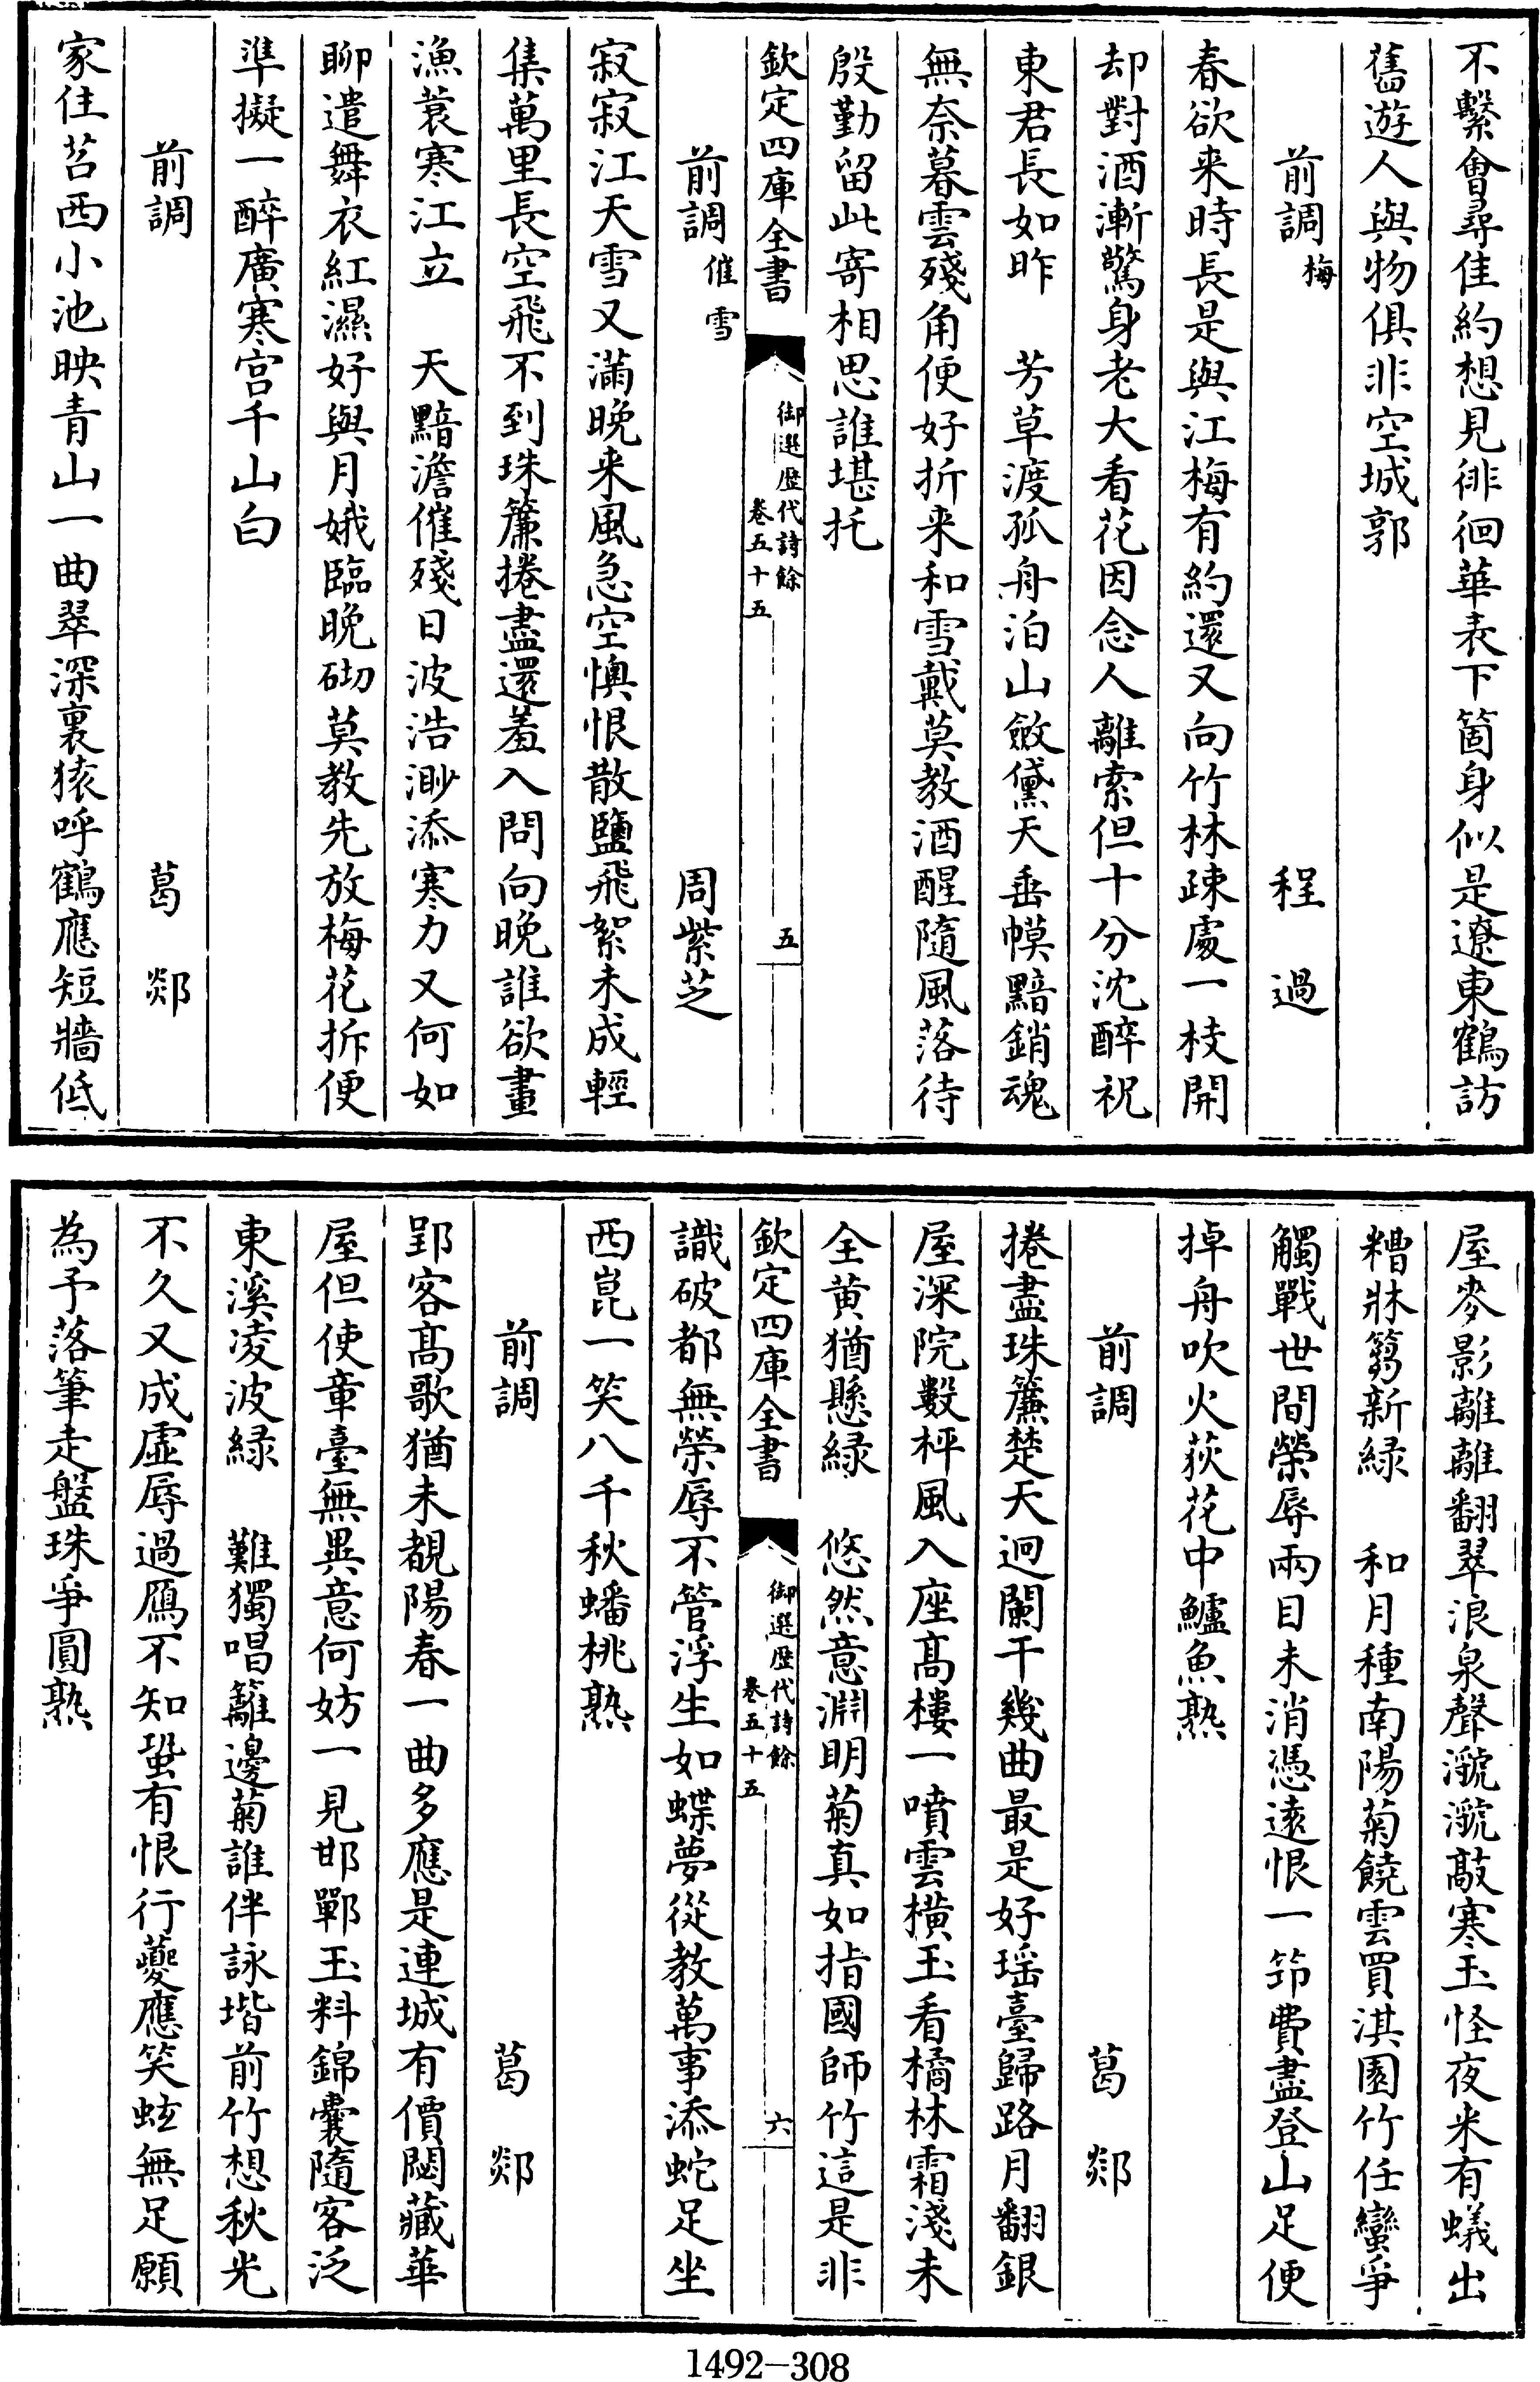 不繫會尋佳約想見徘徊華表下箇身似是遼東鶴訪
舊遊人與物俱非空城郭
前調梅 程過
春欲来時長是與江梅有約還又向竹林疎處一枝開
却對酒漸驚身老大看花因念人離索但十分沈醉祝
東君長如昨 芳草渡孤舟泊山斂黛天垂幙黯銷魂
無奈暮雲殘角便好折来和雪戴莫教酒醒隨風落待
殷勤留此寄相思誰堪托
欽定四庫全書 御選歷代詩餘 卷五十五 五
前調催雪 周紫芝
寂寂江天雪又滿晚来風急空懊恨散鹽飛絮未成輕
集萬里長空飛不到珠簾捲盡還羞入問向晚誰欲畫
漁蓑寒江立 天黯澹催殘日波浩渺添寒力又何如
聊遣舞衣紅濕好與月娥臨晚砌莫教先放梅花拆便
準擬一醉廣寒宮千山白
前調 葛郯
家住苕西小池映青山一曲翠深裏猿呼鶴應短牆低
屋麥影離離翻翠浪泉聲㶁㶁敲寒玉怪夜来有蟻出
糟牀篘新緑 和月種南陽菊饒雲買淇園竹任蠻爭
觸戰世間榮辱兩目未消憑遠恨一笻費盡登山足便
掉舟吹火荻花中鱸魚熟
前調 葛郯
捲盡珠簾楚天迥闌干幾曲最是好瑶臺歸路月翻銀
屋深院數枰風入座髙樓一噴雲橫玉看橘林霜淺未
全黄猶懸緑 悠然意淵明菊真如指國師竹這是非
欽定四庫全書 御選歷代詩餘 卷五十五 六
識破都無榮辱不管浮生如蝶夢從教萬事添蛇足坐
西崑一笑八千秋蟠桃熟
前調 葛郯
郢客髙歌猶未覩陽春一曲多應是連城有價閟藏華
屋但使章臺無異意何妨一見邯鄲玉料錦囊隨客泛
東溪凌波緑 難獨唱籬邊菊誰伴詠堦前竹想秋光
不久又成虛辱過鴈不知蛩有恨行夔應笑蚿無足願
為予落筆走盤珠爭圓熟
1492—308